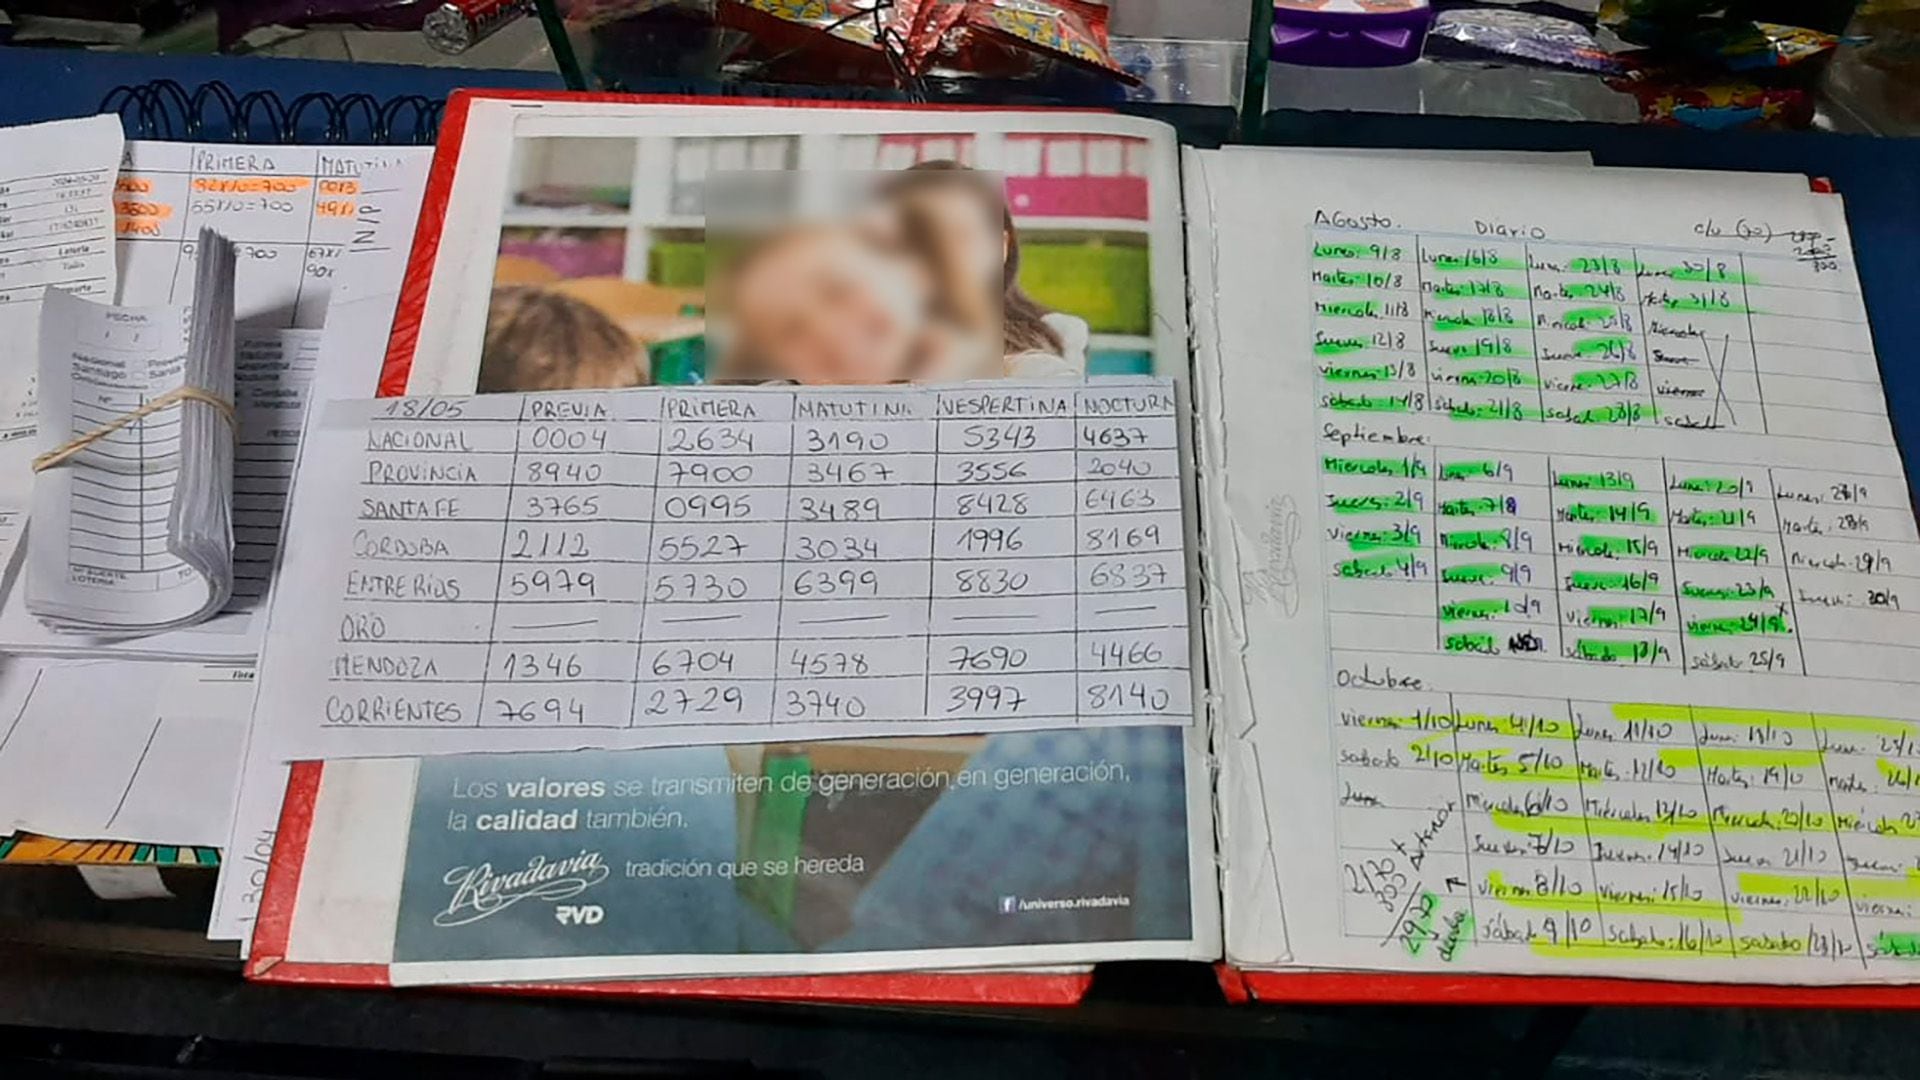 PRIMERA MATUTI
82x10=700 0013
3500 55x10=700
1400
N/P
FECHA
Nacional
Santiago
Nº
18/05 PREVIA PRIMERA MATUTINA VESPERTINA NOCTURN
NACIONAL 0004 2634 3190 5343 4637
PROVINCIA 8940 7900 3467 3556 2040
SANTA FE 3765 0995 3489 8428 6463
CORDOBA 2112 5527 3034 1996 8169
ENTRE RIOS 5979 5730 6399 8830 6837
ORO — — — — —
MENDOZA 1346 6704 4578 7690 4466
CORRIENTES 7694 2729 3740 3997 8140
130/04
Los valores se transmiten de generación en generación,
la calidad también.
Rivadavia tradición que se hereda
RVD
f /universo.rivadavia
Rivadavia
Agosto. Diario c/u (70)
Lunes: 9/8 Lunes 16/8 Lunes 23/8 Lunes 30/8
Martes 10/8 Martes 17/8 Martes 24/8 Martes 31/8
Miercoles 11/8 Miercole 18/8 Miercole 25/8 Miercoles
Jueves 12/8 Jueves 19/8 Jueves 26/8 Jueves
viernes 13/8 viernes 20/8 viernes 27/8 viernes
sabado 14/8 sabado 21/8 sabado 28/8 sabado
Septiembre:
Miercoles 1/9 Lunes 6/9 Lunes 13/9 Lunes 20/9 Lunes: 27/9
Jueves 2/9 Martes 7/8 Martes 14/9 Martes 21/9 Martes: 28/9
viernes 3/9 Miercole 8/9 Miercole 15/9 Miercole 22/9 Miercole 29/9
sabado 4/9 Jueves 9/9 Jueves 16/9 Jueves 23/9 Jueves: 30/9
viernes 10/9 viernes 17/9 viernes 24/9
sabado sábado 18/9 sábado 25/9
Octubre:
viernes 1/10 Lunes 4/10 Lunes 11/10 Lunes 18/10
sabado 2/10 Martes 5/10 Martes 12/10 Martes: 19/10
Miercoles 6/10 Miércoles 13/10 Miercole 20/10 Miércoles
Jueves 7/10 Jueves 14/10 Jueves 21/10
viernes 8/10 viernes: 15/10 viernes: 22/10 viernes:
sábado 9/10 sabado: 16/10 sabado 23/10
2170 +
800 Anterior
2970
debe